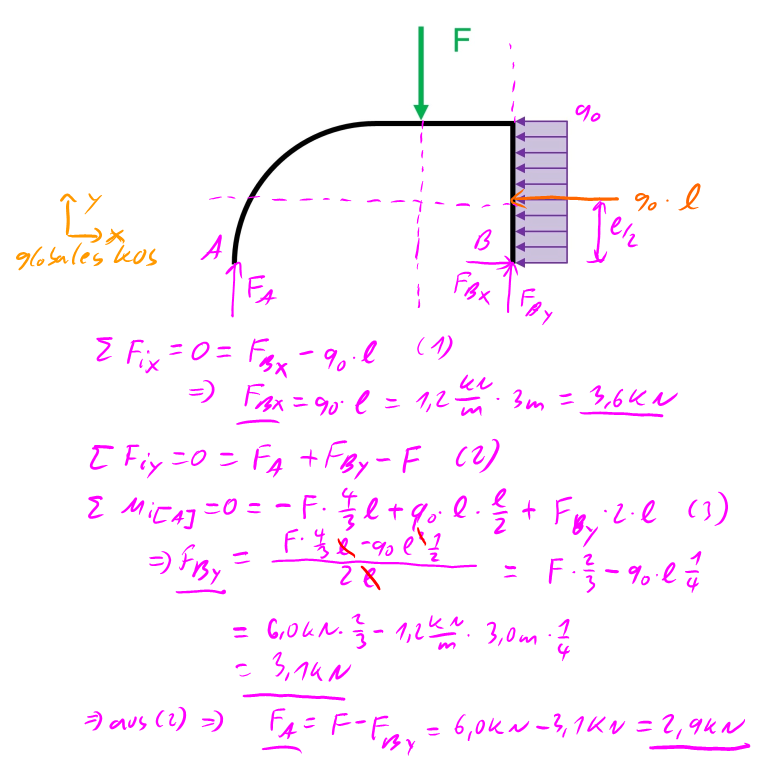 F
q₀
y
q₀ · l
x
globales KOS
A
B
l/2
F_A
F_Bx
F_By
Σ F_ix = 0 = F_Bx - q₀ · l (1)
⇒) F_Bx = q₀ · l = 1,2 kN/m · 3m = 3,6kN
Σ F_iy = 0 = F_A + F_By - F (2)
Σ M_i[A] = 0 = - F · 4/3 l + q₀ · l · l/2 + F_By · 2 · l (3)
⇒) F_By = (F · 4/3 l - q₀ l² 1/2) / 2 l = F · 2/3 - q₀ · l 1/4
= 6,0kN · 2/3 - 1,2 kN/m · 3,0m · 1/4
= 3,1kN
⇒ aus (2) ⇒) F_A = F - F_By = 6,0kN - 3,1kN = 2,9kN